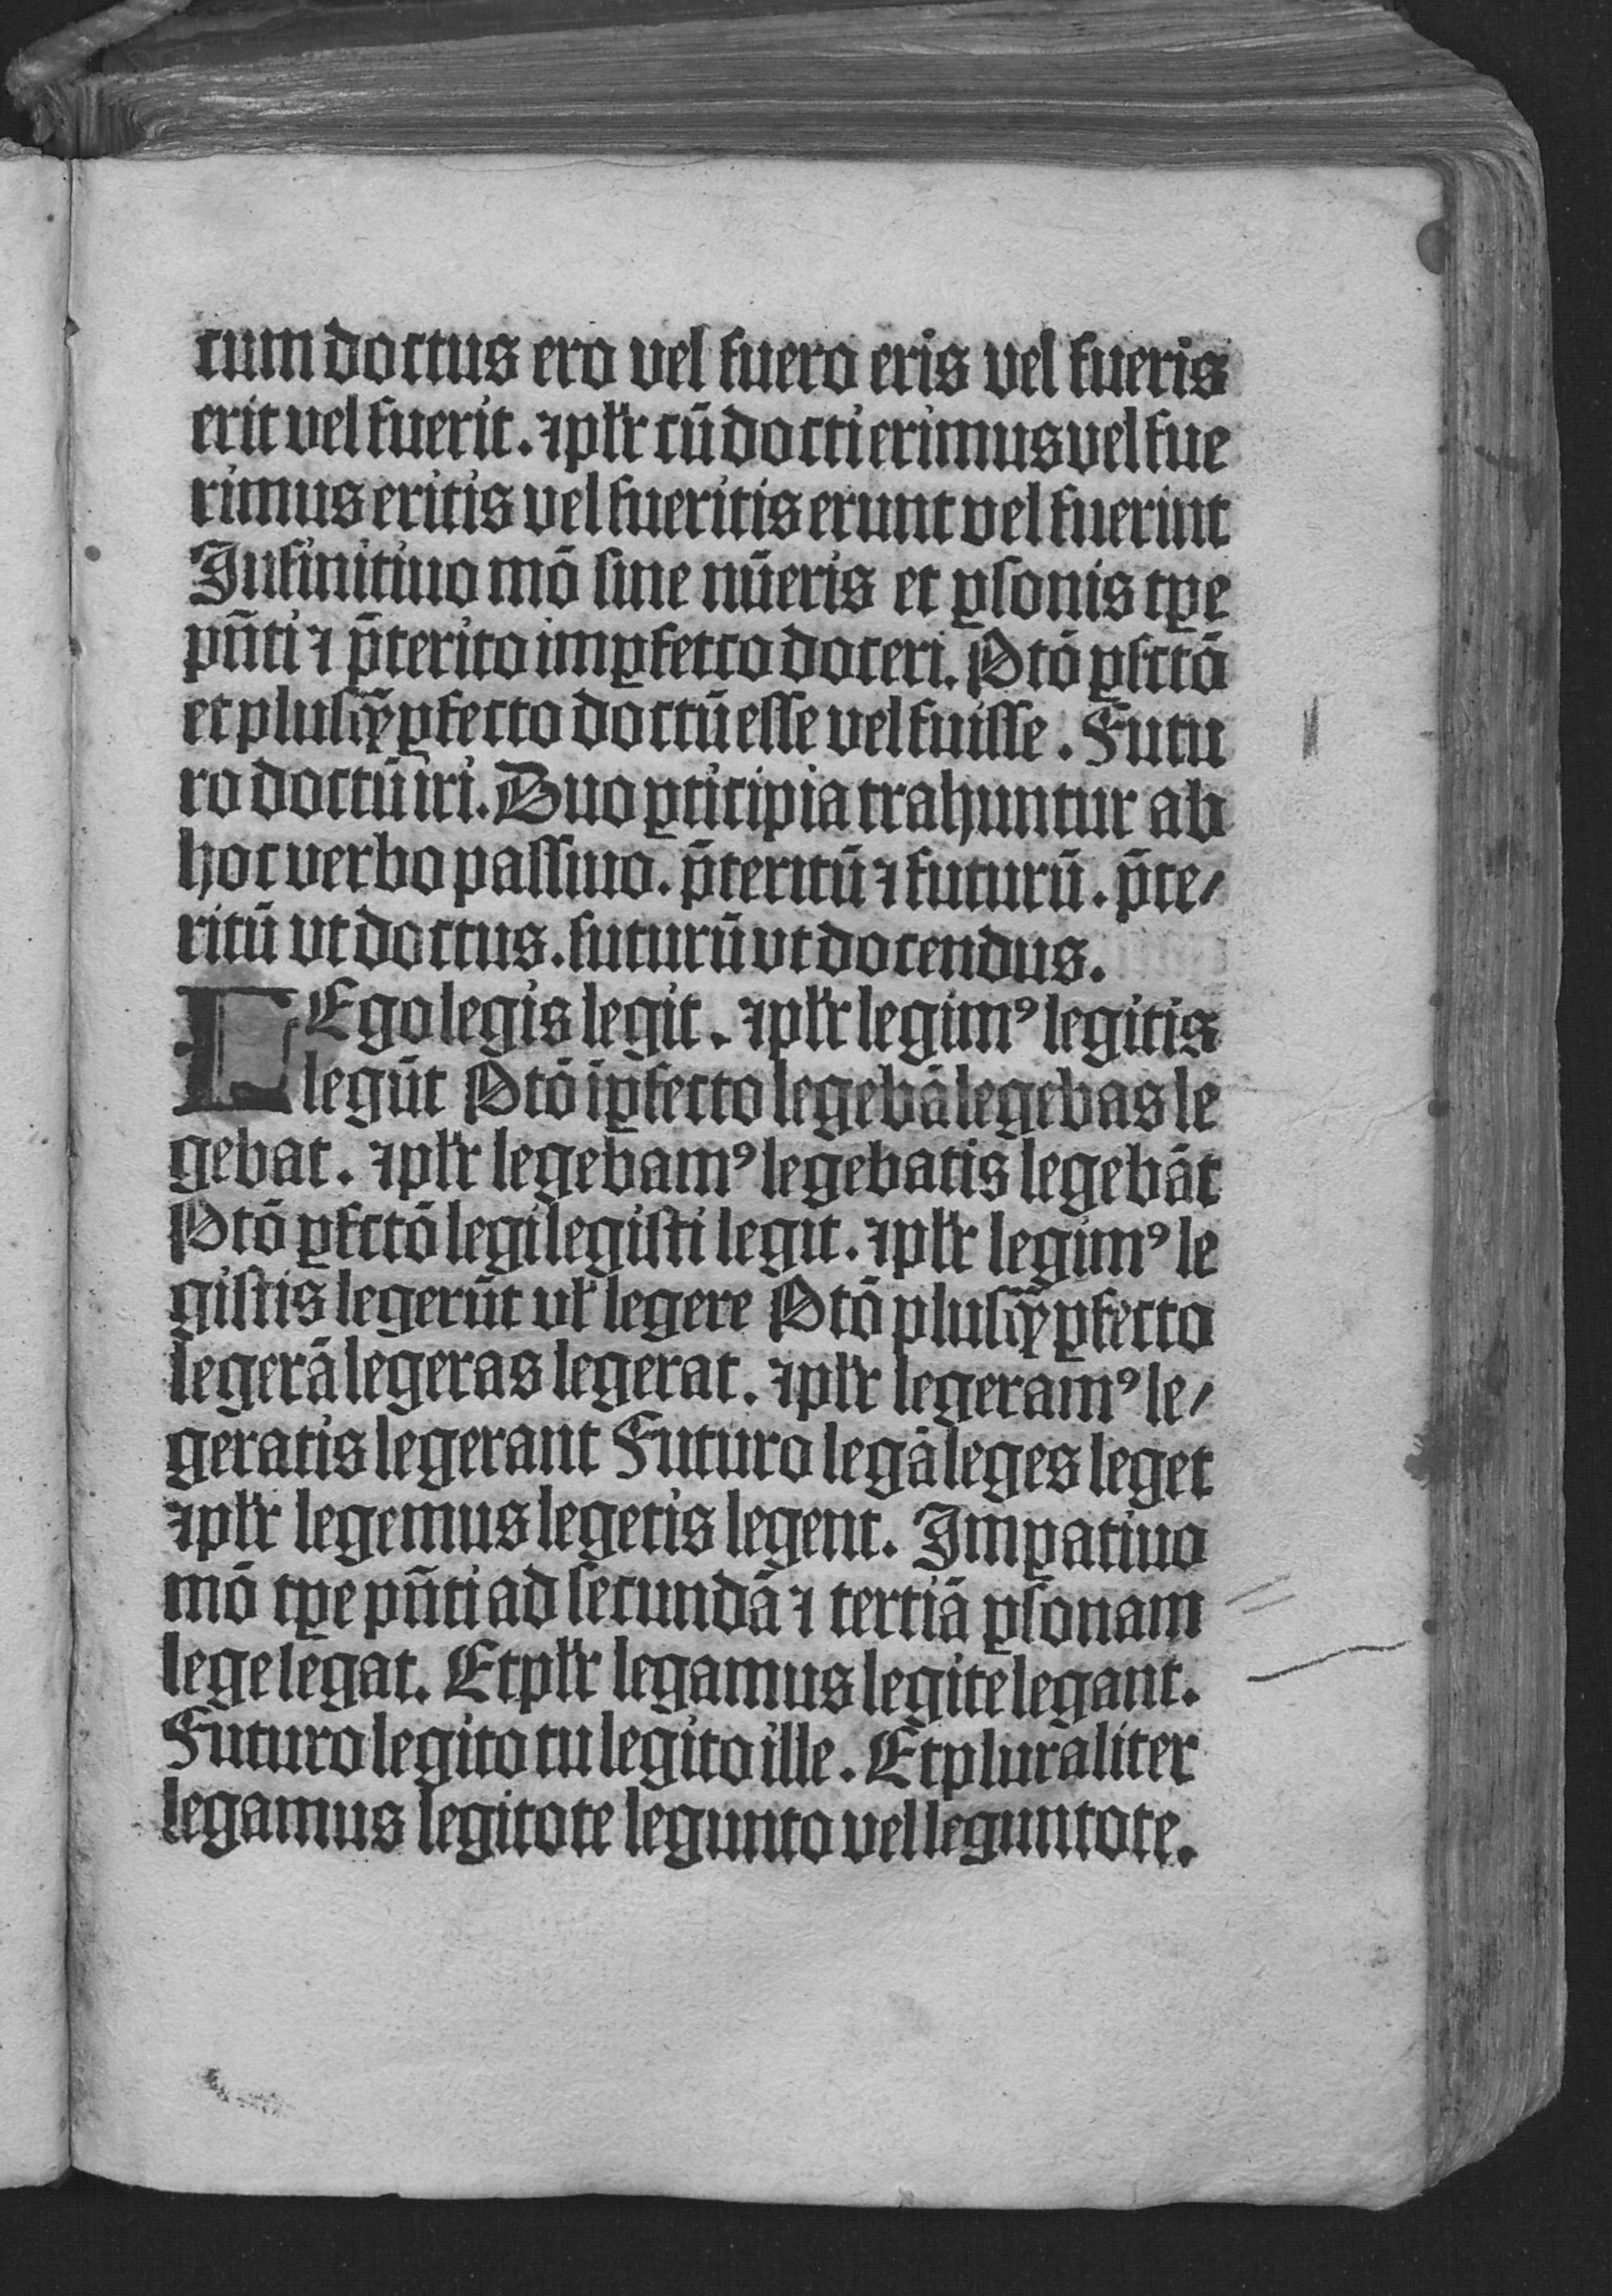 cum doctus ero vel fuero eris vel fueris
erit vel fuerit. ⁊ plr̄ cū docti erimus vel fue
rimus eritis vel fueritis erunt vel fuerint
Infinitiuo mō sine nūeris et ꝑsonis tꝑe
pn̄ti ⁊ p̄terito imꝑfecto doceri. Ptō ꝑfctō
et plusq̄ꝑfecto doctū esse vel fuisse. Futu
ro doctū iri. Duo ꝑticipia trahuntur ab
hoc verbo passiuo. p̄teritū ⁊ futurū. p̄te/
ritū vt doctus. futurū vt docendus.
LEgo legis legit. ⁊ plr̄ legimꝰ legitis
legūt Ptō īꝑfecto legebā legebas le
gebat. ⁊ plr̄ legebamꝰ legebatis legebāt
Ptō ꝑfctō legi legisti legit. ⁊ plr̄ legimꝰ le
gistis legerūt vl̄ legere Ptō plusq̄ꝑfecto
legerā legeras legerat. ⁊ plr̄ legeramꝰ le/
geratis legerant Futuro legā leges leget
⁊ plr̄ legemus legetis legent. Imꝑatiuo
mō tꝑe pn̄ti ad secundā ⁊ tertiā ꝑsonam
lege legat. Et plr̄ legamus legite legant.
Futuro legito tu legito ille. Et pluraliter
legamus legitote legunto vel leguntote.